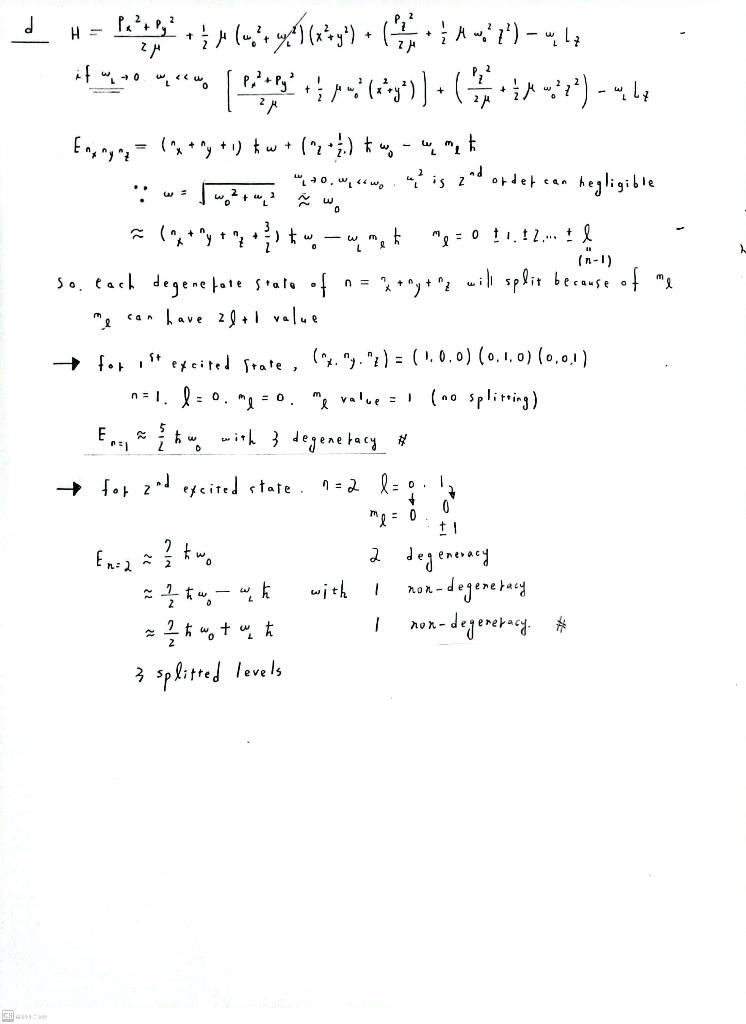 d H = (Px² + Py²)/2μ + 1/2 μ (ω₀² + ω_L²)(x²+y²) + (Pz²/2μ + 1/2 μ ω₀² z²) − ω_L Lz
if ω_L → 0. ω_L << ω₀ [(Px² + Py²)/2μ + 1/2 μ ω₀² (x²+y²)] + (Pz²/2μ + 1/2 μ ω₀² z²) − ω_L Lz
E nx ny nz = (nx + ny + 1) ħω + (nz + 1/2) ħω₀ − ω_L m_ℓ ħ
∵ ω = √(ω₀² + ω_L²) ≈ ω₀ ω_L → 0, ω_L << ω₀. ω_L² is 2nd order can negligible
≈ (nx + ny + nz + 3/2) ħω₀ − ω_L m_ℓ ħ m_ℓ = 0 ±1, ±2, ... ± ℓ
(n−1)
so, each degenerate state of n = nx + ny + nz will split because of m_ℓ
m_ℓ can have 2ℓ+1 value
→ for 1st excited state, (nx, ny, nz) = (1,0,0) (0,1,0) (0,0,1)
n=1, ℓ=0, m_ℓ=0. m_ℓ value = 1 (no splitting)
E n=1 ≈ 5/2 ħω₀ with 3 degeneracy #
→ for 2nd excited state. n=2 ℓ = 0, 1
m_ℓ = 0, 0
±1
E n=2 ≈ 7/2 ħω₀ 2 degeneracy
≈ 7/2 ħω₀ − ω_L ħ with 1 non-degeneracy
≈ 7/2 ħω₀ + ω_L ħ 1 non-degeneracy. #
3 splitted levels
CS